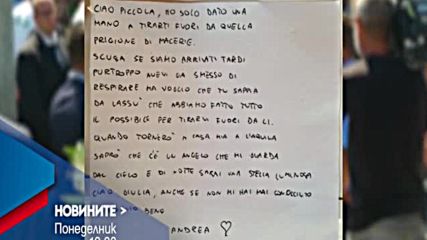 CIAO PICCOLA, HO SOLO DATO UNA
MANO A TIRARTI FUORI DA QUELLA
PRIGIONE DI MACERIE.
SCUSA SE SIAMO ARRIVATI TARDI
PURTROPPO AVEVI GIA SMESSO DI
RESPIRARE MA VOGLIO CHE TU SAPPIA
DA LASSU' CHE ABBIAMO FATTO TUTTO
IL POSSIBILE PER TIRARVI FUORI DA LI.
QUANDO TORNERO' A CASA MIA A L'AQUILA
SAPRO' CHE C'E' UN ANGELO CHE MI GUARDA
DAL CIELO E DI NOTTE SARAI UNA STELLA LUMINOSA
CIAO GIULIA, ANCHE SE NON MI HAI MAI CONOSCIUTO
BENE
ANDREA
НОВИНИТЕ >
Понеделник